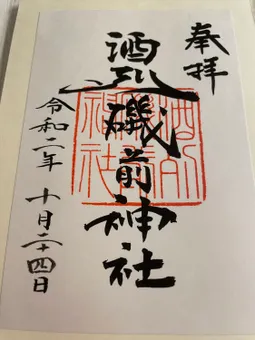 奉拝
酒列磯前神社
令和二年 十月二十四日
酒列
神社